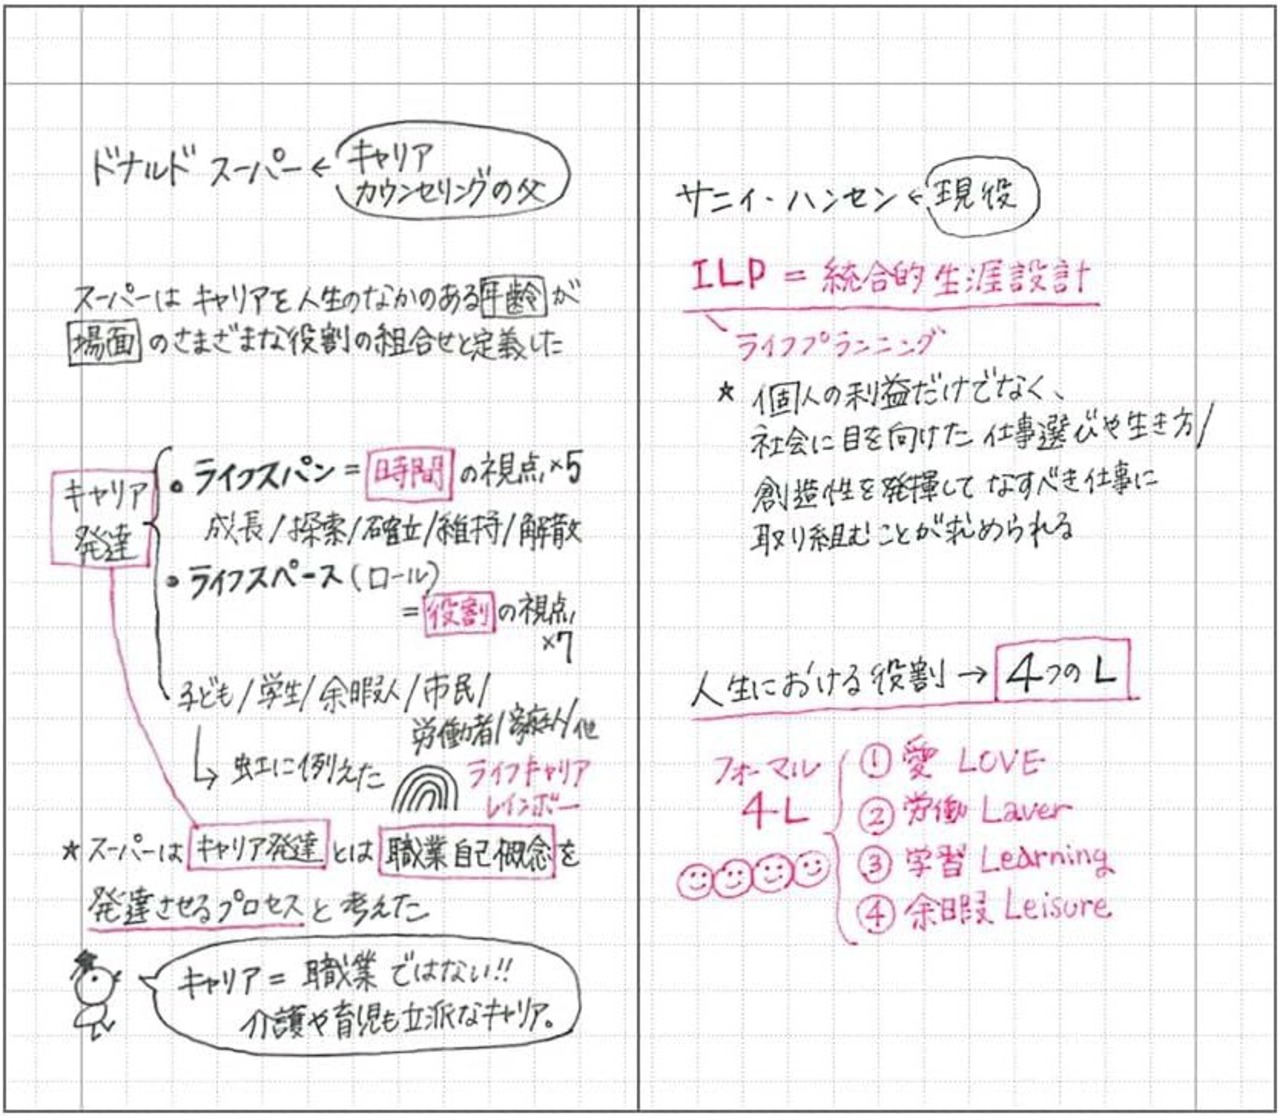 ドナルド スーパー ← キャリア
カウンセリングの父
スーパーは キャリアを 人生のなかのある年齢が
場面のさまざまな役割の組合せと定義した
キャリア
発達
・ライフスパン = 時間 の視点 ×5
成長/探索/確立/維持/解散
・ライフスペース(ロール)
= 役割 の視点
×7
子ども/学生/余暇人/市民/
労働者/家庭人/他
↳ 虹に例えた
ライフキャリア
レインボー
★ スーパーは キャリア発達 とは 職業自己概念 を
発達させるプロセス と 考えた
キャリア = 職業 ではない!!
介護や育児も立派なキャリア。
サニィ・ハンセン ← 現役
ILP = 統合的生涯設計
ライフプランニング
★ 個人の利益だけでなく、
社会に目を向けた 仕事選びや生き方/
創造性を発揮して なすべき仕事に
取り組むことが求められる
人生における役割 → 4つのL
フォーマル
4-L
① 愛 LOVE
② 労働 Laver
③ 学習 Learning
④ 余暇 Leisure